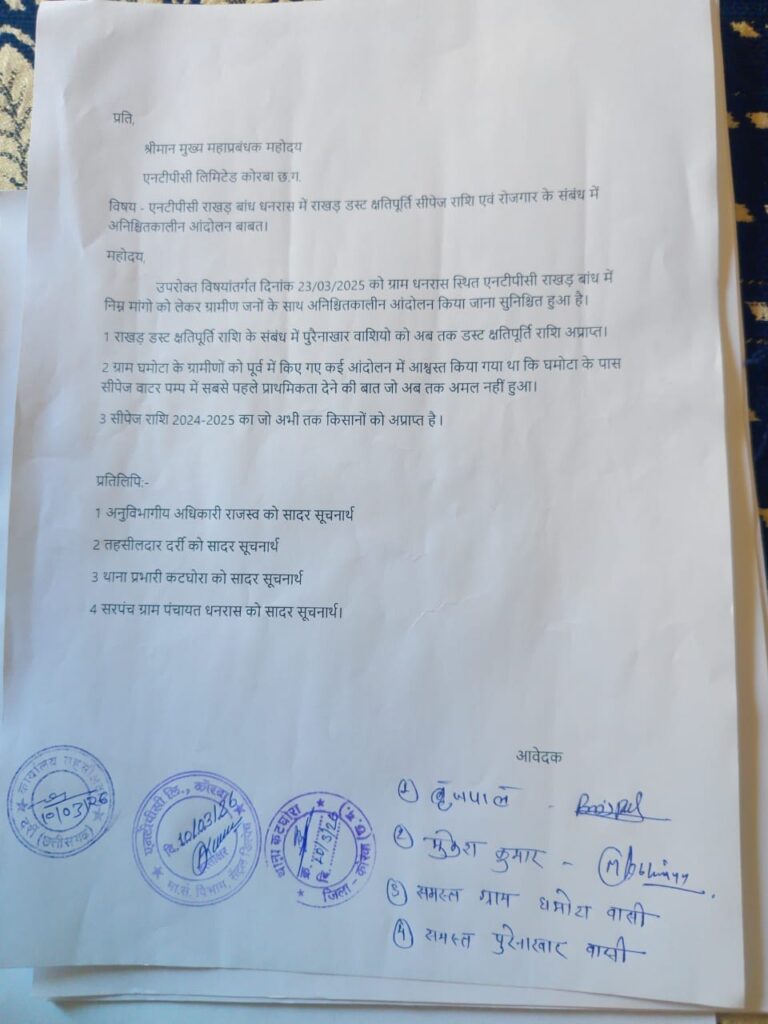 प्रति,
श्रीमान मुख्य महाप्रबंधक महोदय
एनटीपीसी लिमिटेड कोरबा छ.ग.
विषय - एनटीपीसी राखड़ बांध धनरास में राखड़ डस्ट क्षतिपूर्ति सीपेज राशि एवं रोजगार के संबंध में
अनिश्चितकालीन आंदोलन बाबत।
महोदय,
उपरोक्त विषयांतर्गत दिनांक 23/03/2025 को ग्राम धनरास स्थित एनटीपीसी राखड़ बांध में
निम्न मांगो को लेकर ग्रामीण जनों के साथ अनिश्चितकालीन आंदोलन किया जाना सुनिश्चित हुआ है।
1 राखड़ डस्ट क्षतिपूर्ति राशि के संबंध में पुरैनाखार वाशियो को अब तक डस्ट क्षतिपूर्ति राशि अप्राप्त।
2 ग्राम घमोटा के ग्रामीणों को पूर्व में किए गए कई आंदोलन में आश्वस्त किया गया था कि घमोटा के पास
सीपेज वाटर पम्प में सबसे पहले प्राथमिकता देने की बात जो अब तक अमल नहीं हुआ।
3 सीपेज राशि 2024-2025 का जो अभी तक किसानों को अप्राप्त है ।
प्रतिलिपि:-
1 अनुविभागीय अधिकारी राजस्व को सादर सूचनार्थ
2 तहसीलदार दर्री को सादर सूचनार्थ
3 थाना प्रभारी कटघोरा को सादर सूचनार्थ
4 सरपंच ग्राम पंचायत धनरास को सादर सूचनार्थ।
आवेदक
1 बृजपाल -
2 मुकेश कुमार -
3 समस्त ग्राम घमोटा वासी
4 समस्त पुरेनाखार वासी
कार्यालय तहसीलदार
10/03/26
दर्री (छत्तीसगढ़)
एनटीपीसी लि., कोरबा
दि. 10/03/26
मा.सं. विभाग,
थाना कटघोरा
दि. 10/3/26
जिला - कोरबा (छ.ग.)